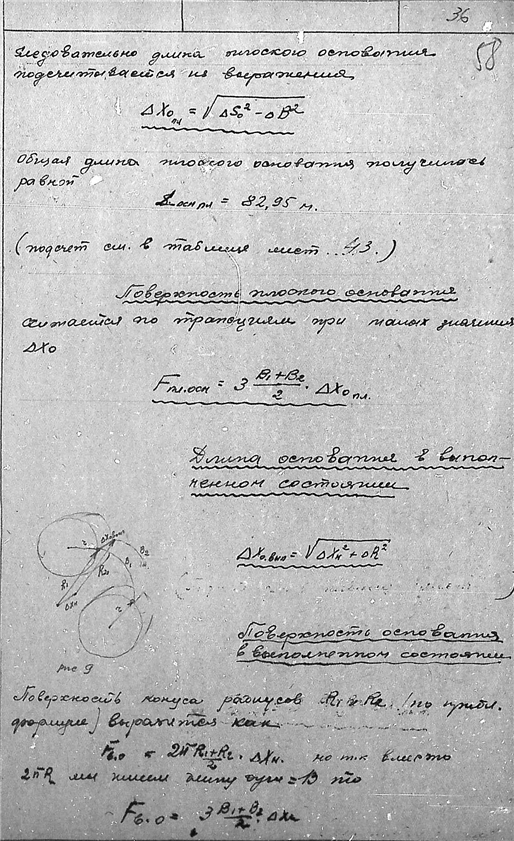 36
58
Следовательно длина плоского основания
подсчитывается из выражения
ΔX₀пл = √ΔS₀² - ΔB²
Общая длина плоского основания получилось
равной
Lосн пл = 82,95 м.
(подсчет см. в таблице лист 43.)
Поверхность плоского основания
считается по трапециям при малых значения
ΔX₀
Fпл.осн = 3 B₁+B₂/2 · ΔX₀ пл.
Длина основания в выпол-
ненном состоянии
ΔX₀.вып = √ΔXн² + ΔR²
Поверхность основания
в выполненном состоянии
рис 9
Поверхность конуса радиусов R₁ и R₂ /по прибл.
формуле/ выразится как
Fв.о = 2π R₁+R₂/2 · ΔXн. но т.к вместо
2πR мы имеем длину дуги = B то
Fв.о = 3 B₁+B₂/2 · ΔXн